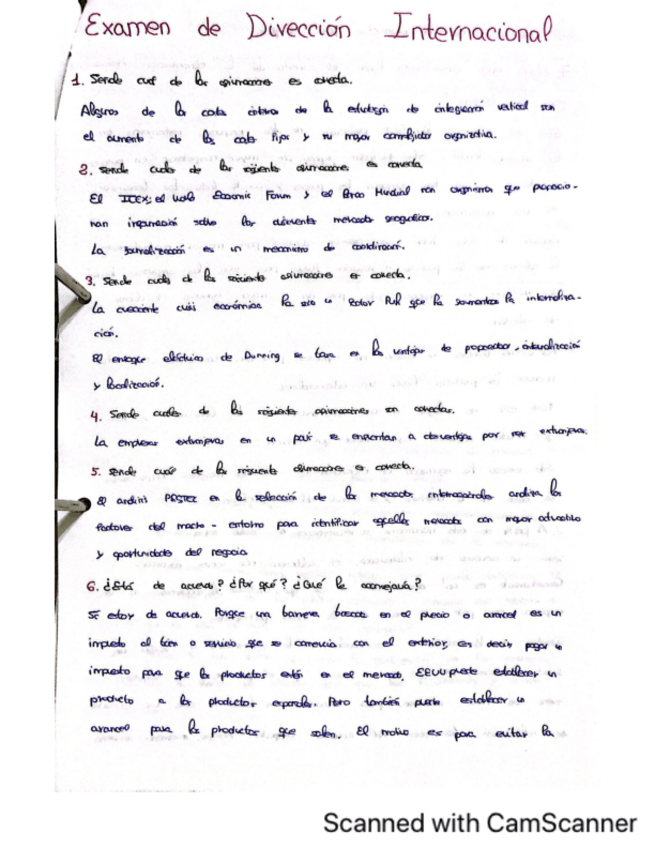 Examen de Dirección Internacional
1. Señale cual de las afirmaciones es correcta.
Algunos de los costes de la estrategia de integración vertical son
el aumento de los costes fijos y su mayor complejidad organizativa.
2. Señale cuales de las siguientes afirmaciones es correcta
El ICEX, el World Economic Forum y el Banco Mundial son organismos que proporcio-
nan información sobre los diferentes mercados geográficos.
La es un mecanismo de coordinación.
3. Señale cuales de las siguientes afirmaciones es correcta.
La creciente crisis económica ha sido un factor Pull que ha la internaliza-
ción.
El enfoque ecléctico de Dunning se basa en las ventajas de propiedad, internalización
y localización.
4. Señale cuales de las siguientes afirmaciones son correctas.
La empresas extranjeras en un país se enfrentan a desventajas por ser extranjeras.
5. Señale cual de las siguientes afirmaciones es correcta.
El análisis PESTEL en la selección de los mercados internacionales analiza los
factores del macro-entorno para identificar aquellos mercados con mayor atractivo
y oportunidades del negocio
6. ¿Estás de acuerdo? ¿Por qué? ¿Qué le aconsejaría?
Si estoy de acuerdo. Porque una barrera basada en el precio o arancel es un
impuesto al bien o servicio que se comercia con el exterior, es decir, pagar un
impuesto para que los productos estén en el mercado. EEUU puede establecer un
producto a los productos españoles. Pero también puede establecer un
arancel para los productos que salen. El motivo es para evitar la
Scanned with CamScanner